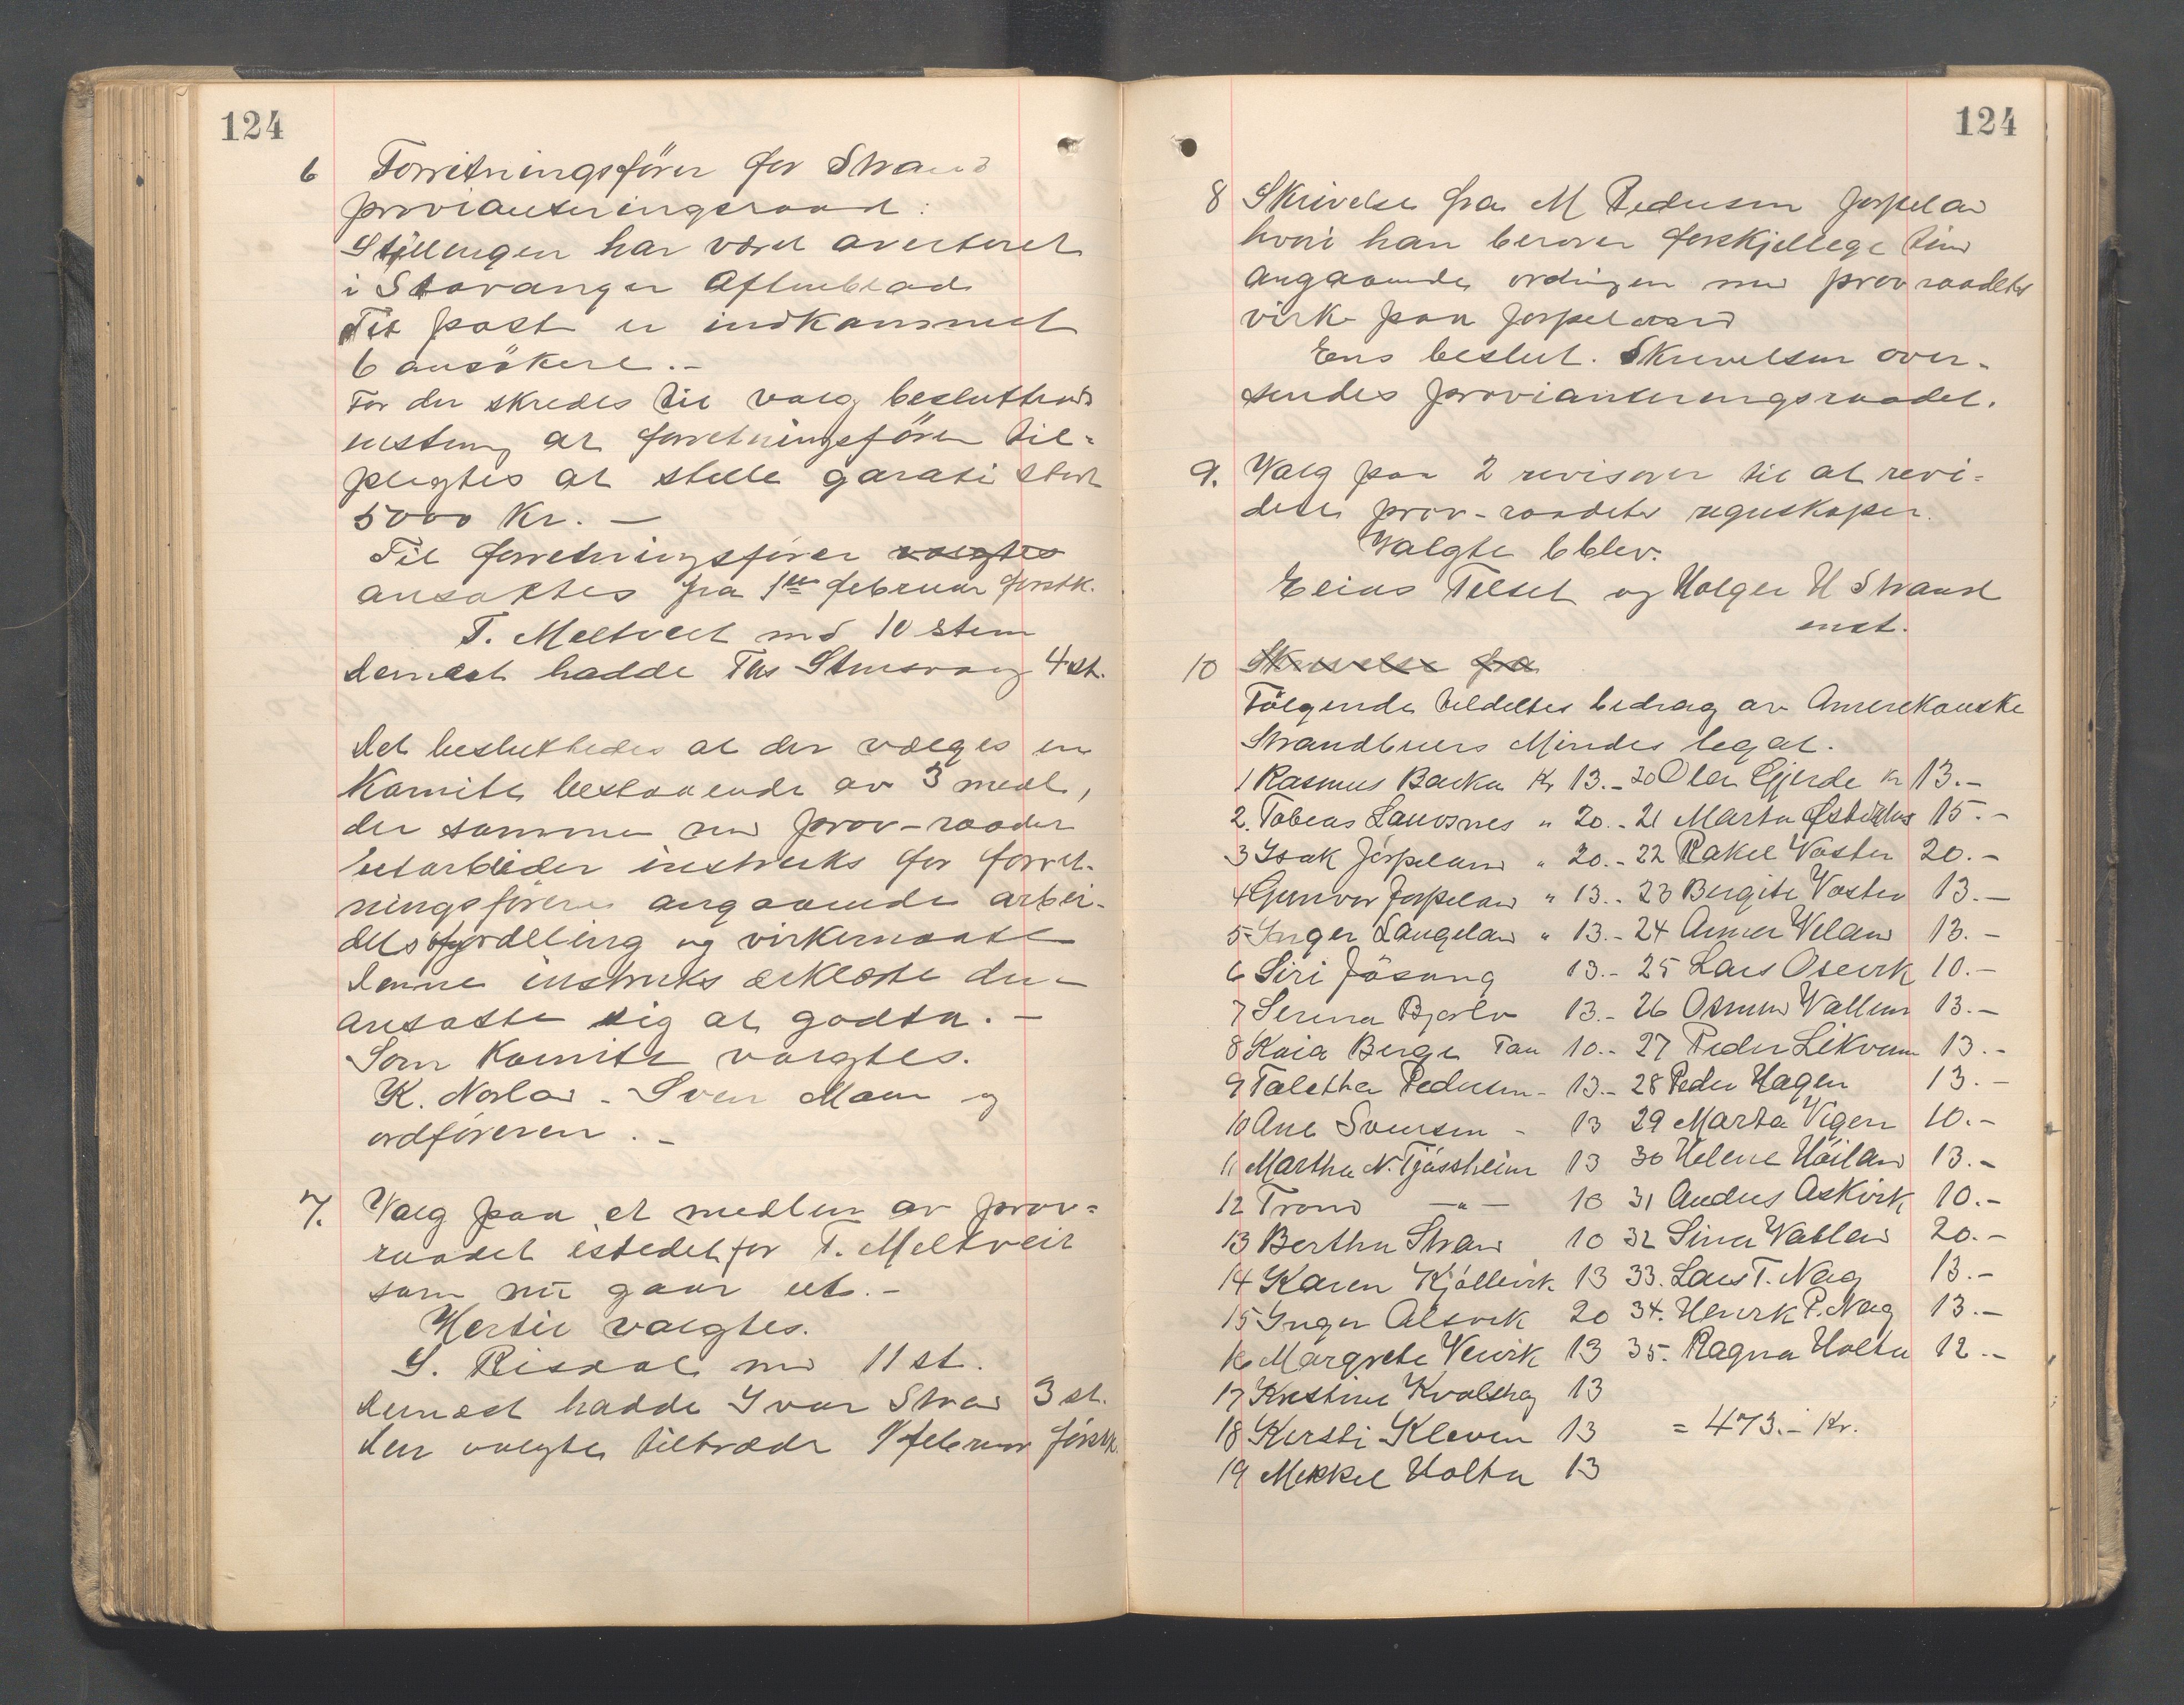 124
6 Forretningsförer for Strand
provianteringsraad:
Stillingen har været averteret
i Stavanger Aftenblad
Til post er indkommet
6 ansökere.-
Før der skredes til valg besluttedes
enstem, at forretningsfören til-
pligtes at stelle garati stort
5000 Kr. —
Til forretningsförer valgtes
ansattes fra 1ste februar førstk.
T. Meltveit med 10 stem
dernæst hadde Ths Stensvaag 4 st.
Det besluttedes at der vælges en
Komite bestaaende av 3 medl,
der sammen med prov-raadet
utarbeider instruks for forret-
ningsføreren angaaende arbei-
dets fordeling og virkemaate
denne instruks erklærte den
ansatte sig at godta. —
Som Komite valgtes.
K. Norland - Sven Mam og
ordføreren. —
7. Valg paa et medlem av prov-
raadet istedet for T. Meltveit
som nu gaar ut. -
Hertil valgtes.
S. Risdal med 11 st.
dernæst hadde Ivar Strand 3 st.
den valgte tiltræder 1 februar førstk.
124
8 Skrivelse fra M Pedersen Jørpeland
hvori han berører forskjellige ting
angaaende ordningen med prov raadets
virke paa Jørpeland
Ens beslut. Skrivelsen over-
sendes provianteringsraadet.
9. Valg paa 2 revisorer til at revi-
dere prov-raadets regnskaper.
Valgte blev.
Elias Tilset og Holger H Strand
enst.
10 Skrivelse fra
Følgende tildeltes bedrag av Amerekanske
Strandbuers Mindes legat.
1 Rasmus Barka Kr 13.- 20 Olea Gjerde Kr 13.-
2. Tobias Lauvsnes " 20.- 21 Marta Østerhus 15.-
3 Isak Jørpeland " 20.- 22 Rakel Voster 20.-
4 Gunvor Jørpeland " 13.- 23 Bergite Voster 13.-
5 Inger Langeland " 13.- 24 Anna Veland 13.-
6 Siri Jösang 13.- 25 Lars Osevik 10.-
7 Serina Bjørlv 13.- 26 Osmund Vallem 13.-
8 Kaia Berge Tau 10.- 27 Peder Likvam 13.-
9 Taletha Pedersen - 13.- 28 Peder Hagen 13.-
10 Ane Svensen - 13 29 Marta Vigen 10.-
11 Martha N. Tjössheim 13 30 Helene Höiland 13.-
12 Trond —"— 10 31 Anders Askvik 10.-
13 Bertha Strand 10 32 Sina Vatland 20.-
14 Karen Kjöllevik 13 33. Lars T. Nag 13.-
15 Inger Alsvik 20 34. Henrik P. Nag 13.-
16 Margrete Vervik 13 35. Ragna Holta 12.-
17 Kristine Kvalshag 13
18 Kersti Kleven 13 = 473.- Kr.
19 Mikkel Holta 13